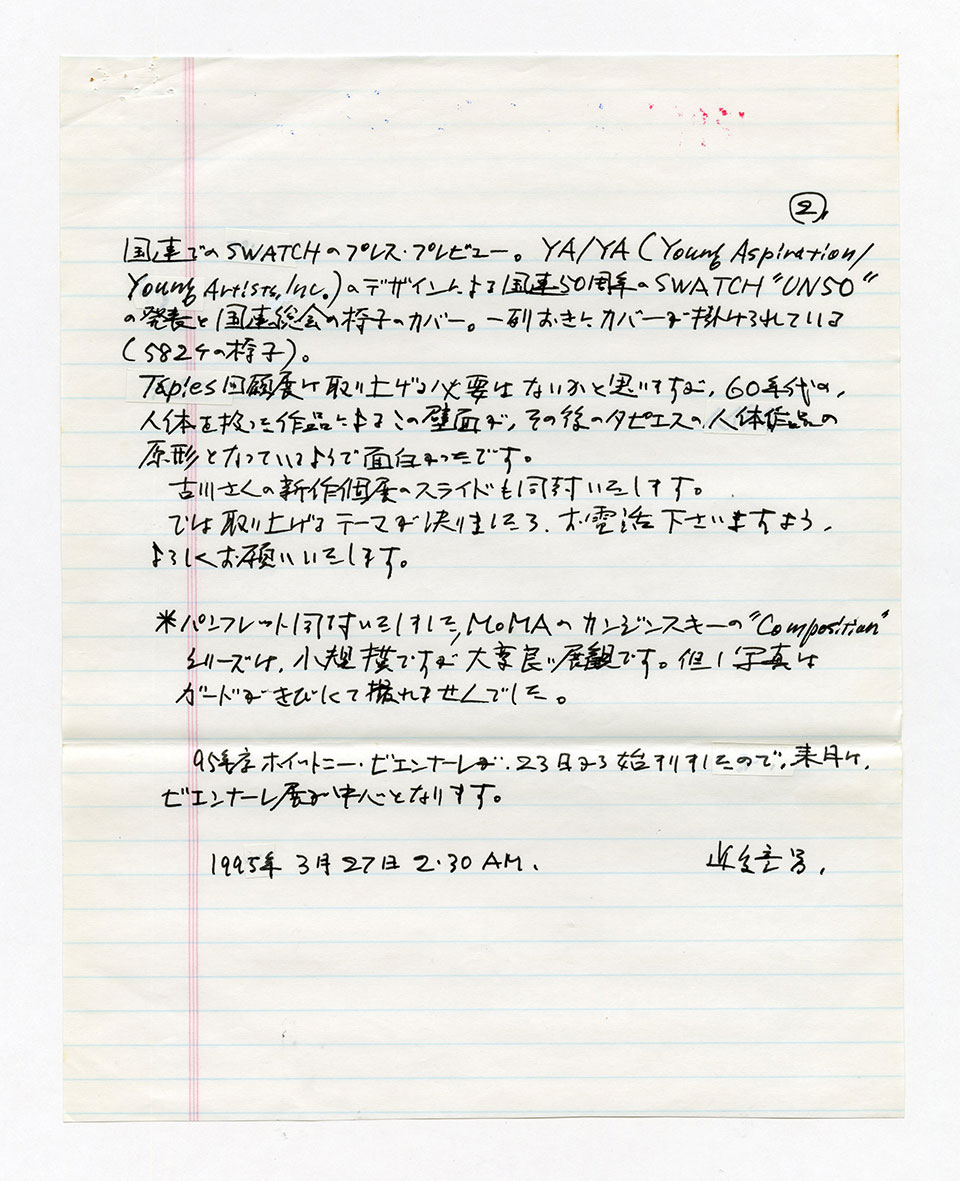 ②
国連でのSWATCHのプレス・プレビュー。YA/YA (Young Aspiration/
Young Artists, Inc.)のデザインによる国連50周年のSWATCH "UN50"
の発表と国連総会の椅子のカバー。一列おきにカバーが掛けられている
(582ケの椅子)。
Tàpies回顧展は取り上げる必要はないかと思いますが、60年代の、
人体を扱った作品によるこの壁面が、その後のタピエスの人体作品の
原形となっているようで面白かったです。
古川さんの新作個展のスライドも同封いたします。
では取り上げるテーマが決りましたら、お電話下さいますよう、
よろしくお願いいたします。
*パンフレット同封いたしました、MoMAのカンジンスキーの"Composition"
シリーズは、小規模ですが大変良い展観です。但し写真は
ガードがきびしくて撮れませんでした。
95年度ホイットニー・ビエンナーレが、23日から始まりましたので、来月は、
ビエンナーレ展が中心となります。
1995年 3月27日 2.30 AM.